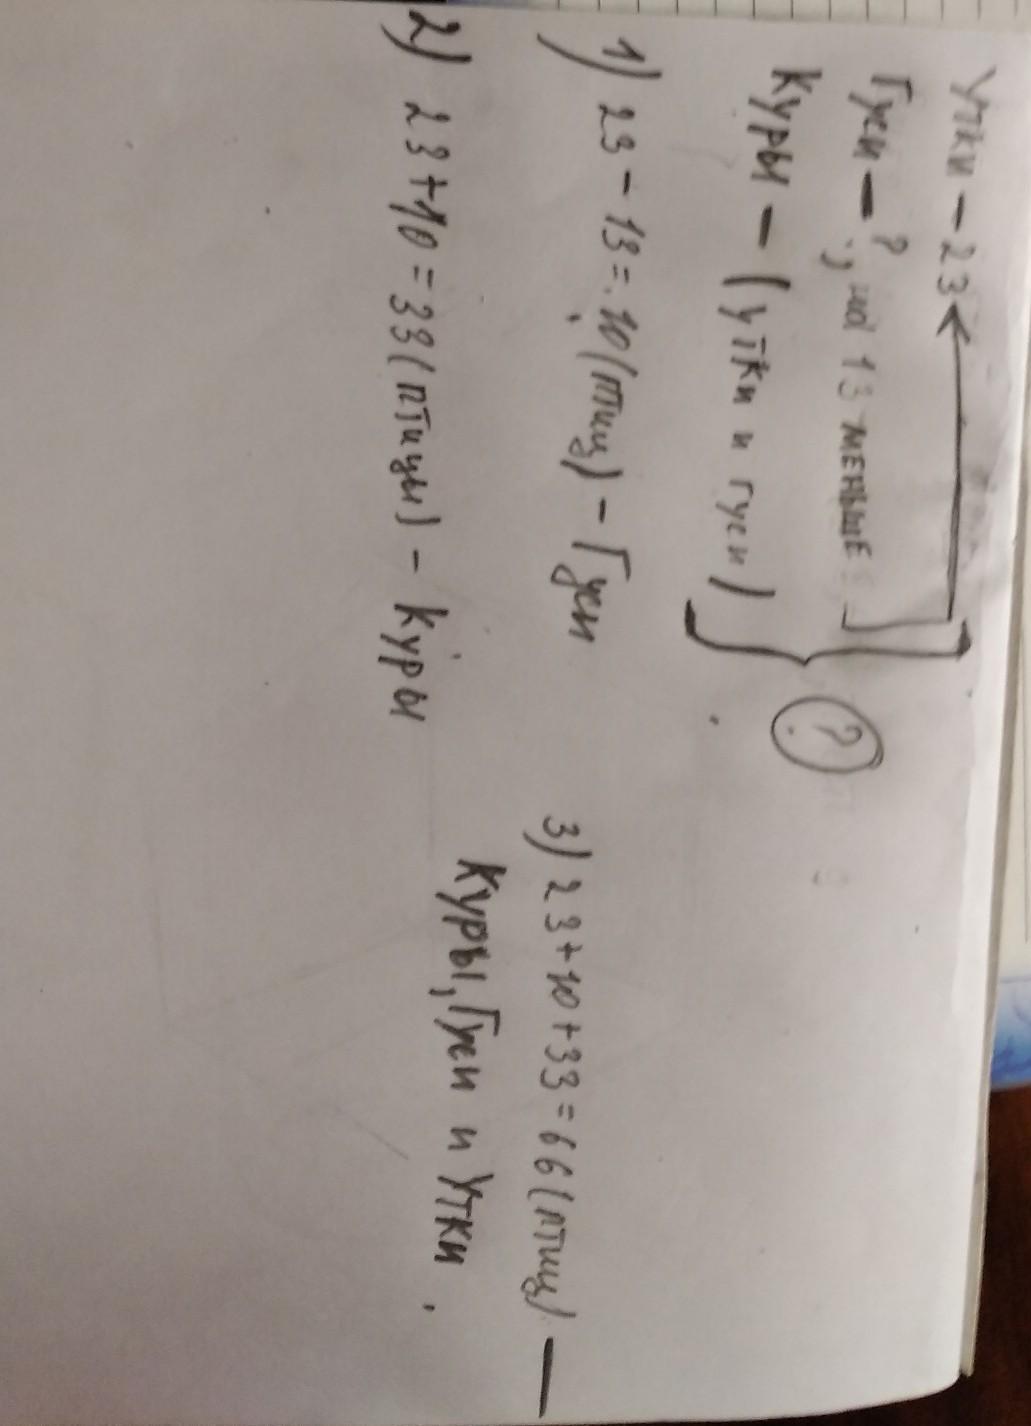 Утки - 23
Гуси - ?, на 13 меньше
Куры - (утки и гуси)
?
1) 23 - 13 = 10 (птиц) - Гуси
2) 23 + 10 = 33 (птицы) - Куры
3) 23 + 10 + 33 = 66 (птиц) —
Куры, Гуси и Утки.